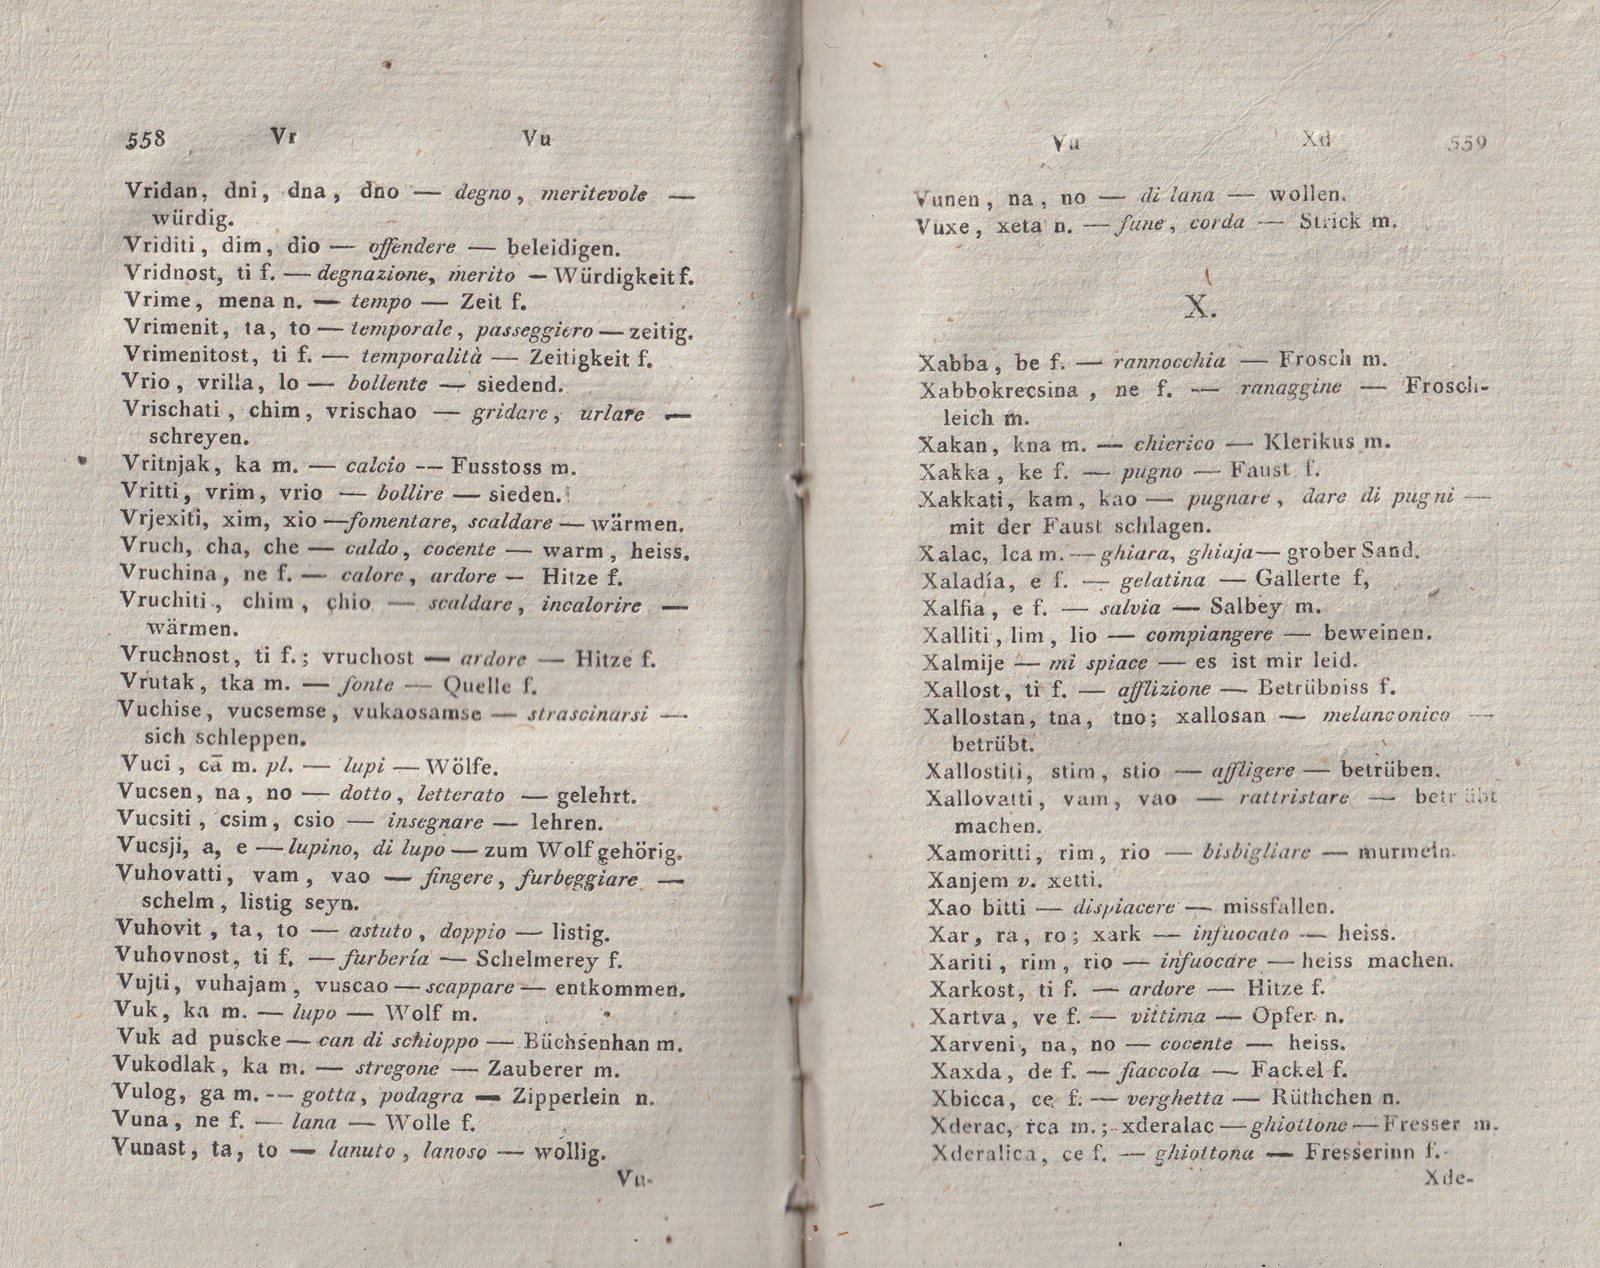 558 Vr Vu
Vridan, dni, dna, dno — degno, meritevole —
würdig.
Vriditi, dim, dio — offendere — beleidigen.
Vridnost, ti f. — degnazione, merito — Würdigkeit f.
Vrime, mena n. — tempo — Zeit f.
Vrimenit, ta, to — temporale, passeggiero — zeitig.
Vrimenitost, ti f. — temporalità — Zeitigkeit f.
Vrio, vrilla, lo — bollente — siedend.
Vrischati, chim, vrischao — gridare, urlare —
schreyen.
Vritnjak, ka m. — calcio — Fusstoss m.
Vritti, vrim, vrio — bollire — sieden.
Vrjexiti, xim, xio — fomentare, scaldare — wärmen.
Vruch, cha, che — caldo, cocente — warm, heiss.
Vruchina, ne f. — calore, ardore — Hitze f.
Vruchiti, chim, chio — scaldare, incalorire —
wärmen.
Vruchnost, ti f.; vruchost — ardore — Hitze f.
Vrutak, tka m. — fonte — Quelle f.
Vuchise, vucsemse, vukaosamse — strascinarsi —
sich schleppen.
Vuci, cā m. pl. — lupi — Wölfe.
Vucsen, na, no — dotto, letterato — gelehrt.
Vucsiti, csim, csio — insegnare — lehren.
Vucsji, a, e — lupino, di lupo — zum Wolf gehörig.
Vuhovatti, vam, vao — fingere, furbeggiare —
schelm, listig seyn.
Vuhovit, ta, to — astuto, doppio — listig.
Vuhovnost, ti f. — furbería — Schelmerey f.
Vujti, vuhajam, vuscao — scappare — entkommen.
Vuk, ka m. — lupo — Wolf m.
Vuk ad puscke — can di schioppo — Büchsenhan m.
Vukodlak, ka m. — stregone — Zauberer m.
Vulog, ga m. — gotta, podagra — Zipperlein n.
Vuna, ne f. — lana — Wolle f.
Vunast, ta, to — lanuto, lanoso — wollig.
Vu-
Vu Xd 559
Vunen, na, no — di lana — wollen.
Vuxe, xeta n. — fune, corda — Strick m.
X.
Xabba, be f. — rannocchia — Frosch m.
Xabbokrecsina, ne f. — ranaggine — Frosch-
leich m.
Xakan, kna m. — chierico — Klerikus m.
Xakka, ke f. — pugno — Faust f.
Xakkati, kam, kao — pugnare, dare di pugni —
mit der Faust schlagen.
Xalac, lca m. — ghiara, ghiaja — grober Sand.
Xaladía, e f. — gelatina — Gallerte f,
Xalfia, e f. — salvia — Salbey m.
Xalliti, lim, lio — compiangere — beweinen.
Xalmije — mi spiace — es ist mir leid.
Xallost, ti f. — afflizione — Betrübniss f.
Xallostan, tna, tno; xallosan — melanconico —
betrübt.
Xallostiti, stim, stio — affligere — betrüben.
Xallovatti, vam, vao — rattristare — betrübt
machen.
Xamoritti, rim, rio — bisbigliare — murmeln.
Xanjem v. xetti.
Xao bitti — dispiacere — missfallen.
Xar, ra, ro; xark — infuocato — heiss.
Xariti, rim, rio — infuocare — heiss machen.
Xarkost, ti f. — ardore — Hitze f.
Xartva, ve f. — vittima — Opfer n.
Xarveni, na, no — cocente — heiss.
Xaxda, de f. — fiaccola — Fackel f.
Xbicca, ce f. — verghetta — Rüthchen n.
Xderac, rca m.; xderalac — ghiottone — Fresser m.
Xderalica, ce f. — ghiottona — Fresserinn f.
Xde-